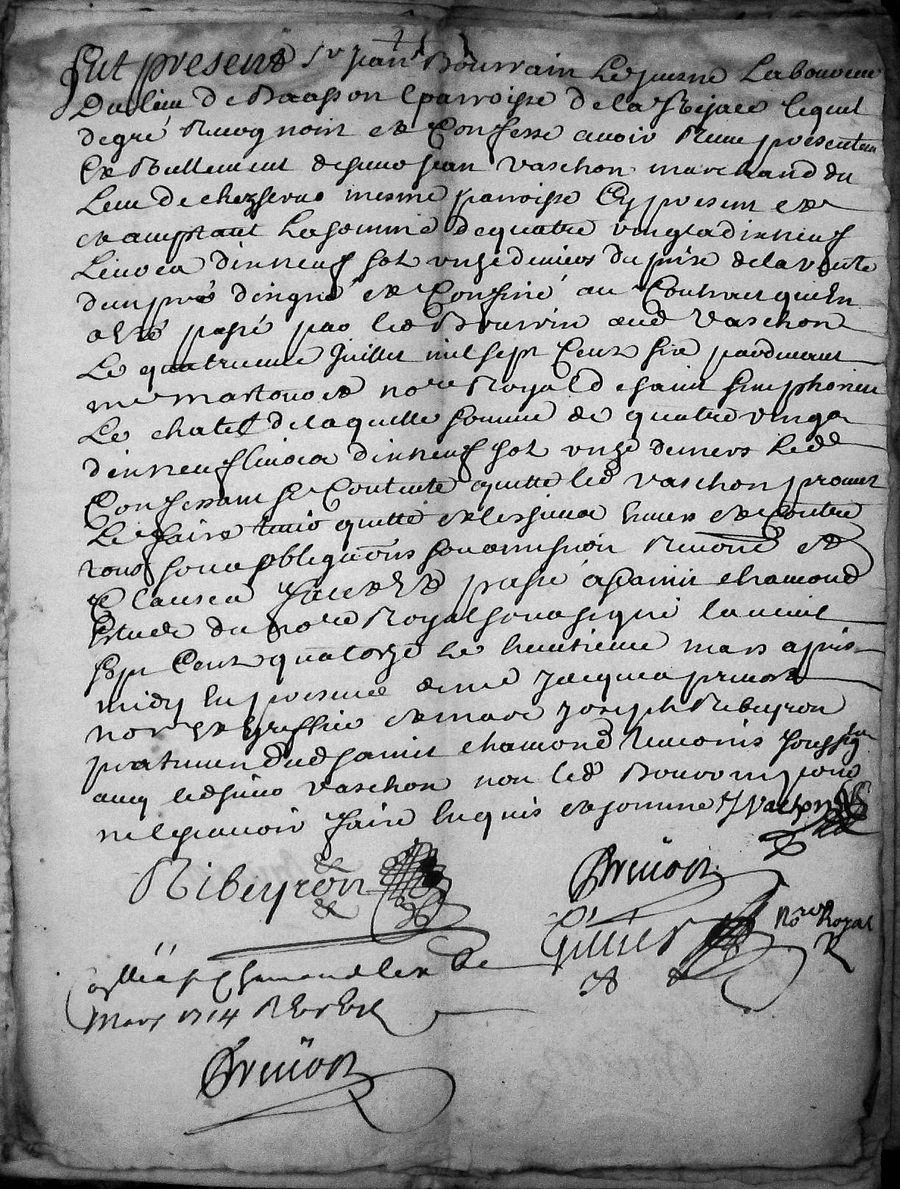 fut present Sr Jean Bourrain Le jeune Laboureur
du lieu de Baasson parroisse de la lequel
degré Recognoit et Confesse avoir Reeu presentem
Et Rellement de sieur jean Vaschon marchand du
Lieu de mesme parroisse Cy present et
et acceptant La somme de quatre vingtz dix neuf
Livres dix neuf solz unze deniers du prix de la vente
dun pré dzigné et Confiné au Contract qui En
a esté passé par led Bourrin aud Vaschon
Le quatrieme Juillet mil sept Centz six pardevant
me not.re Royal de saint simphorien
Le chatel de laquelle somme de quatre vingtz
dix neuf livres dix neuf solz unze deniers led
Confessant se Contente quitte led Vaschon promet
Le faire tenir quitte envers et Contre
tous soubz obligaons soubmission Renonc et
Clauses passé a saint chamond
Estude du no.re Royal soubsigné Lan mil
sept Centz quatorze le huitieme mars apres
midy En presence de me Jacques prenon
no.re et greffier et de marc Joseph Ribeyron
praticien dud saint chamond temoins soussig
avec led sieur Vaschon non led Bourrin pour
ne scavoir faire Enquis et somme J Vachon
Ribeyron
Prenon
Gillier No.re Royal
R
Conllé a St Chamond le
Mars 1714 R
Prenon